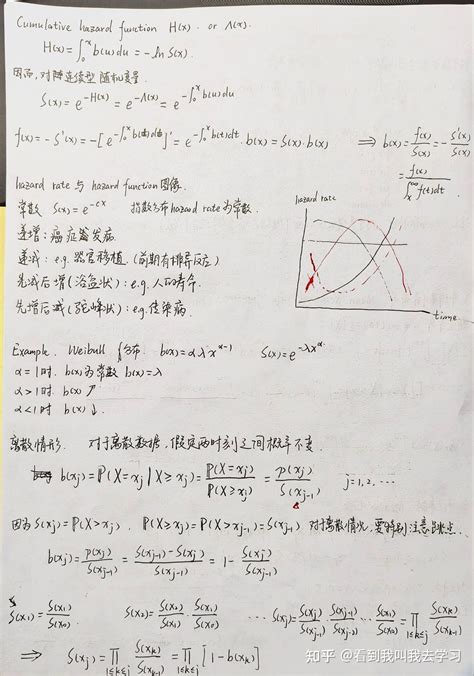 Cumulative hazard function H(x). or Λ(x).
H(x)=∫₀ˣ h(u)du = -ln S(x).
因而,对连续型随机变量
S(x) = e^{-H(x)} = e^{-Λ(x)} = e^{-∫₀ˣ h(u)du}
f(x) = -S'(x) = -[e^{-∫₀ˣ h(u)du}]' = e^{-∫₀ˣ h(t)dt}·h(x) = S(x)·h(x) ⇒ h(x) = f(x)/S(x) = -S'(x)/S(x)
= f(x)/∫ₓ^∞ f(t)dt
hazard rate 与 hazard function 图像.
常数 S(x)=e^{-cx} 指数分布 hazard rate 为常数.
递增: 癌症发病
递减: e.g. 器官移植. (前期有排异反应)
先减后增(浴盆状): e.g. 人的寿命.
先增后减(驼峰状): e.g. 传染病.
hazard rate
time
Example. Weibull 分布. h(x)=αλx^{α-1} S(x)=e^{-λx^α}
α=1时. h(x)为常数 h(x)=λ
α>1时. h(x) ↗
α<1时 h(x) ↓.
离散情形. 对于离散数据,假定两时刻之间概率不变.
h(xj) = P(X=xj | X≥xj) = P(X=xj)/P(X≥xj) = p(xj)/S(xj-1) j=1,2,···
因为 S(xj)=P(X>xj), P(X≥xj)=P(X>xj-1)=S(xj-1) 对于离散情况,要特别注意跳点.
h(xj) = p(xj)/S(xj-1) = (S(xj-1)-S(xj))/S(xj-1) = 1 - S(xj)/S(xj-1)
S(x1) = S(x1)/S(x0) S(x2) = S(x2)/S(x1) · S(x1)/S(x0) ··· S(xj) = S(xj)/S(xj-1) · S(xj-1)/S(xj-2) ··· S(x1)/S(x0) = ∏_{1≤k≤j} S(xk)/S(xk-1)
⇒ S(xj) = ∏_{1≤k≤j} S(xk)/S(xk-1) = ∏_{1≤k≤j} [1-h(xk)]
知乎 @看到我叫我去学习